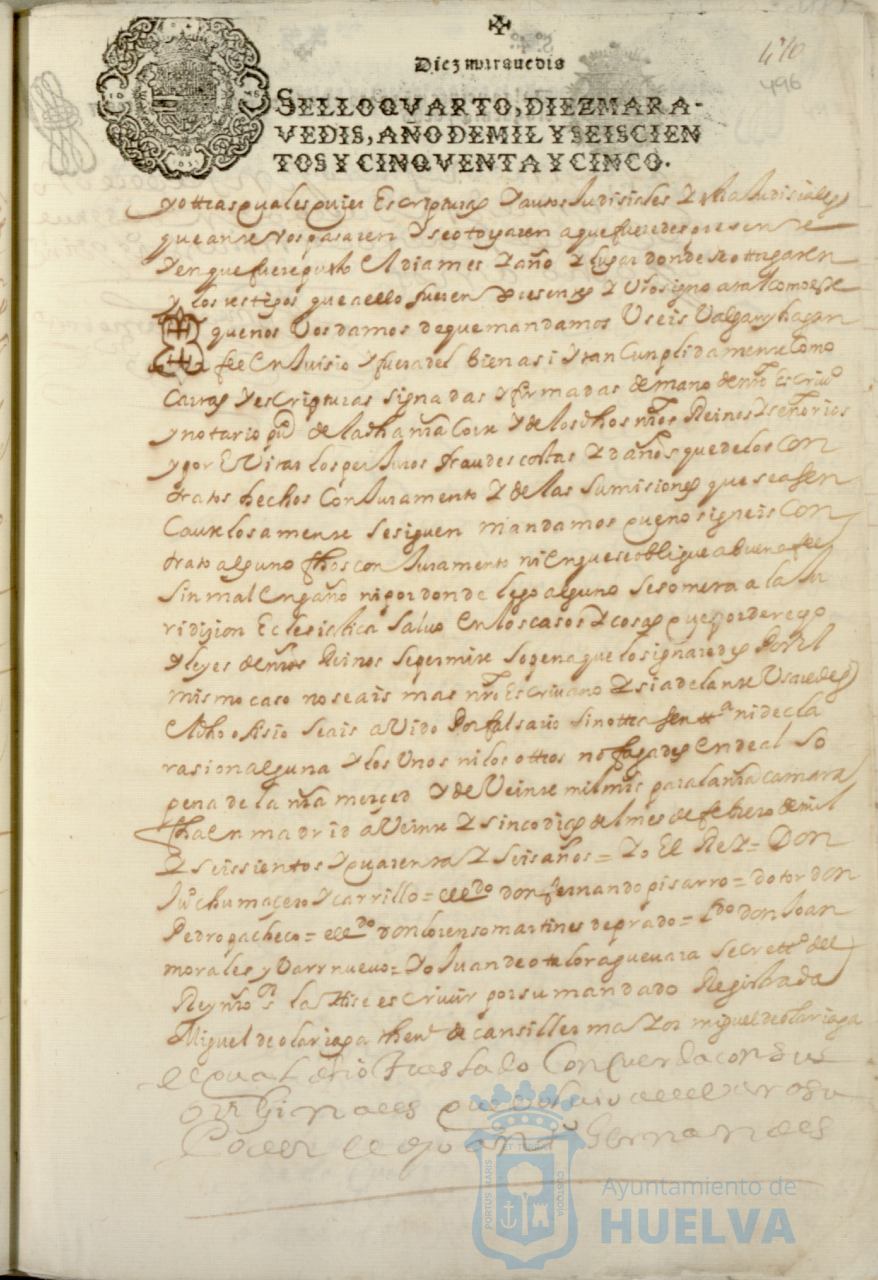 Diez maravedis
470
496
SELLO QVARTO, DIEZ MARA-
VEDIS, AÑO DE MIL Y SEISCIEN
TOS Y CINQVENTA Y CINCO.
y otras quales quier Escripturas Y autos Judisiales Y
que ante vos pasaren Y se otorgaren a que fueredes presente
Y en que fuere puesto El dia mes Y año Y lugar donde se otorgaren
y los testigos que a ello fueren presentes Y vro signo a tal como este
que nos Vos damos de que mandamos Useis Valgan y hagan
fee En Juisio Y fuera del bien asi Y tan Cunplidamente Como
Cartas Y escripturas signadas Y firmadas de mano de nro Escrivo
y notario pco de la dha nra Corte Y de los dhos nros Reinos Y señorios
y por Evitar los perjuros fraudes costas Y daños que de los Con
tratos hechos Con Juramento Y de las sumisiones que se asen
Cautelosamente se siguen mandamos que no signeis Con
trato alguno fhos con Juramento ni En que se obligue a buena fee
sin mal Engaño ni por donde lego alguno se someta a la Ju
ridision Eclesiastica salvo En los casos Y cosas que por derecho
Y leyes de nros Reinos se permite so pena que lo signaredes Por el
mismo caso no seais mas nro Escrivano Y si adelante Usaredes
El dho ofisio seais avido Por falsario sin otra sentta ni decla
rasion alguna Y los Unos ni los otros no fagades Ende al so
pena de la nra merced Y de Veinte mil mrs para la nra camara
fha En madrid a Veinte Y sinco dias del mes de febrero de mil
Y seissientos Y quarenta Y seis años = Yo El Rey = Don
Ju° chumacero Y carrillo = el ldo don fernando pisarro = dotor don
Pedro pacheco = el ldo don lorenso martines de prado = ldo don Joan
morales y barrnuevo = Yo Juan de otalora guevara secretto del
Rey nro sr la hise escrivir por su mandado Registrada
Miguel de olariaga thente de cansiller mayor miguel de olariaga
el qual dho traslado Conquerda con su
original que volvio a llevar a su
Poder el dho Hernandes
PORTUS MARIS
ET TERRAE
CUSTODIA
Ayuntamiento de
HUELVA